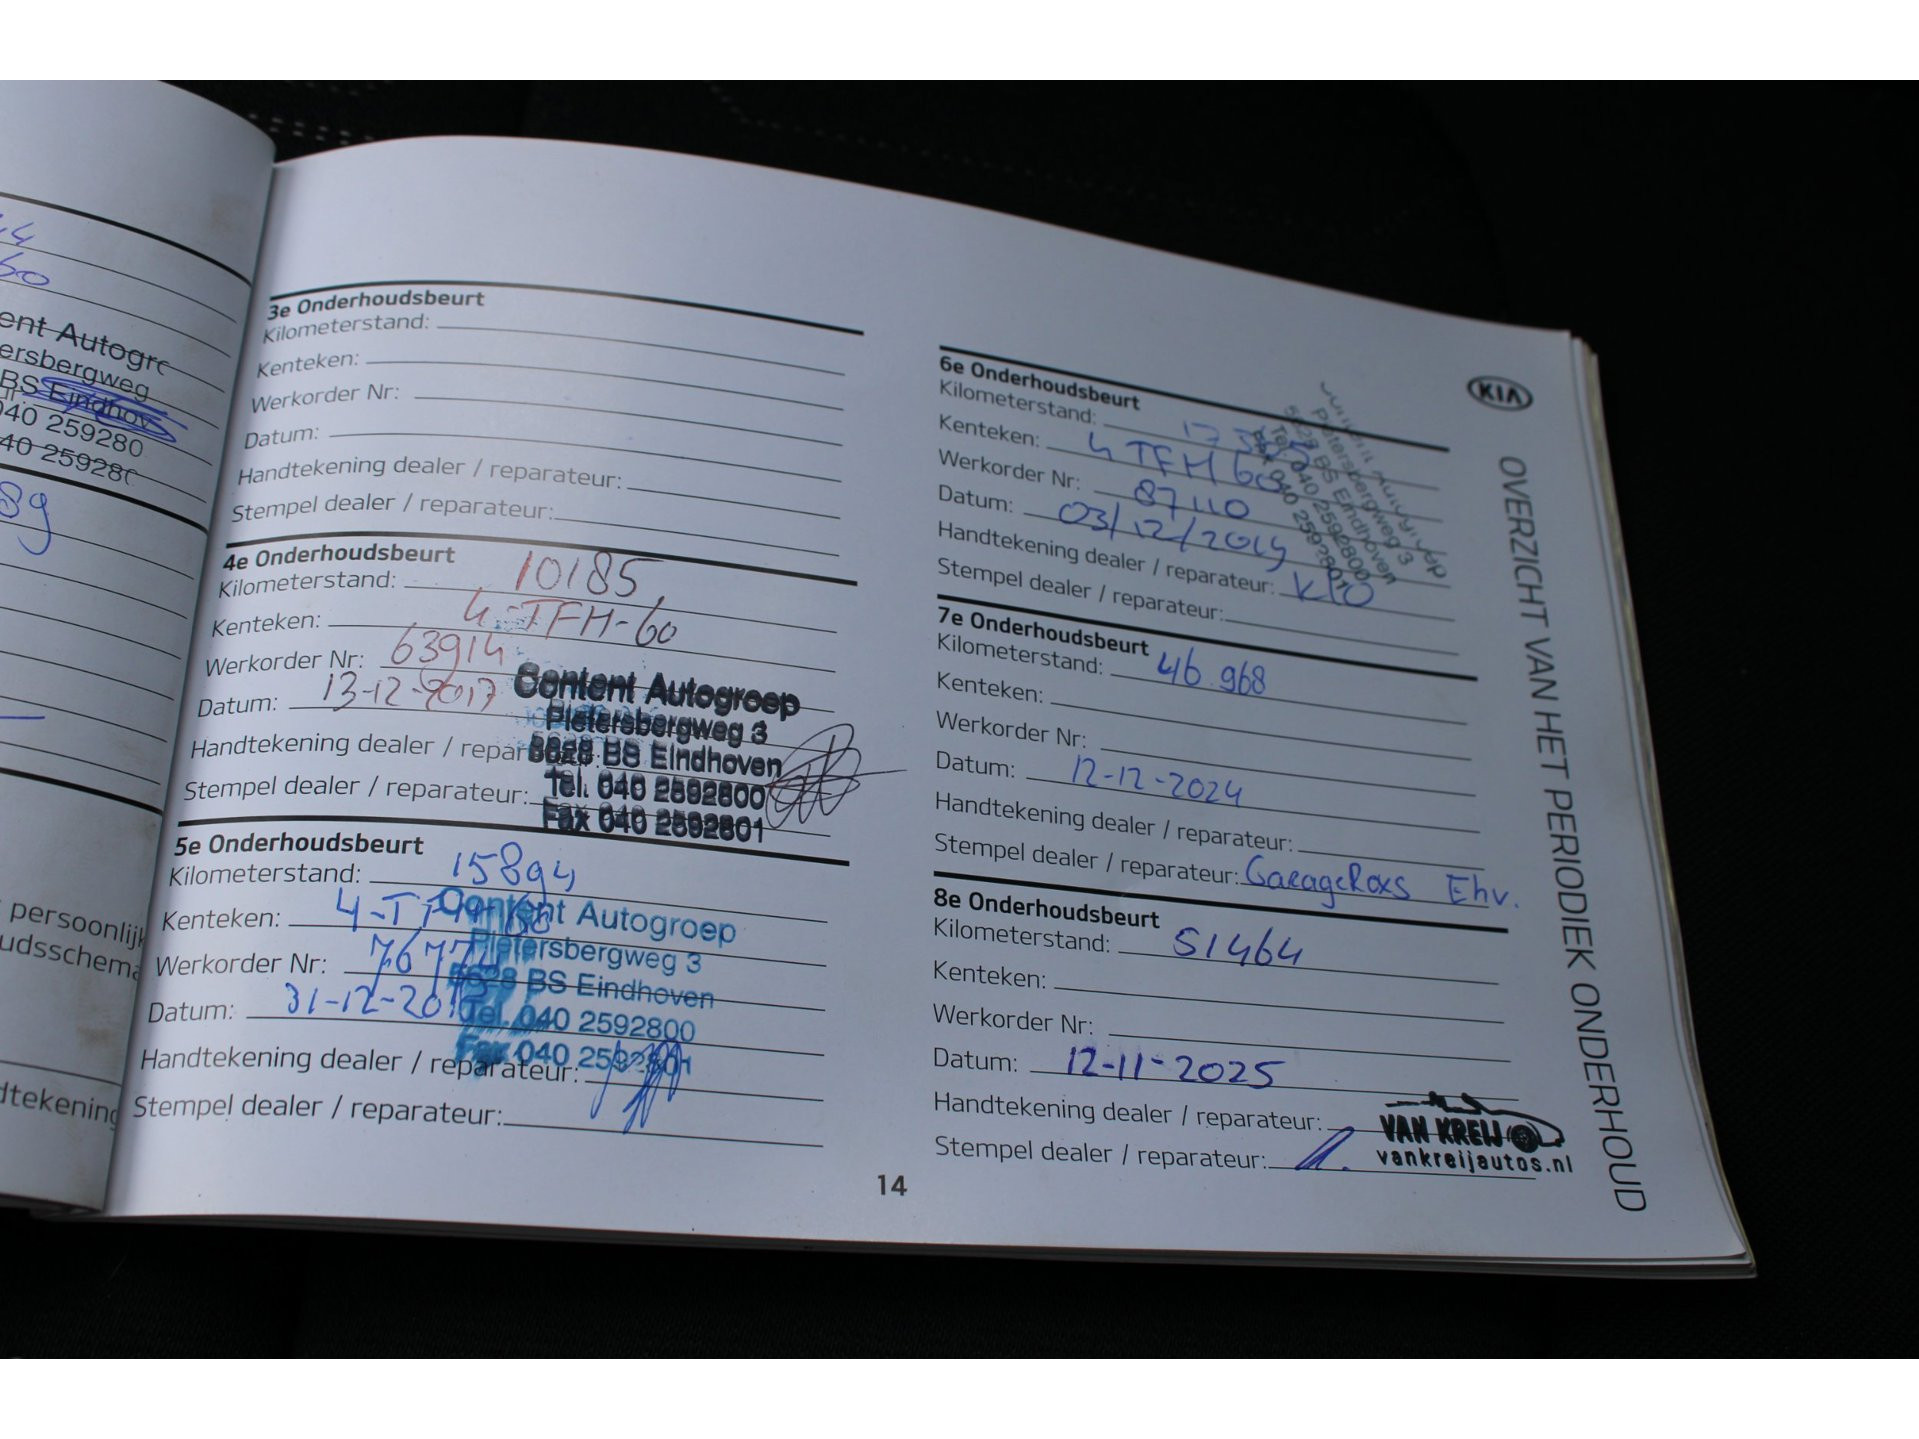 44
60
ent Autogr
ersbergweg
BS Eindhov
040 259280
40 259280
89
persoonlijk
udsschema
dtekening
3e Onderhoudsbeurt
Kilometerstand:
Kenteken:
Werkorder Nr:
Datum:
Handtekening dealer / reparateur:
Stempel dealer / reparateur:
4e Onderhoudsbeurt
Kilometerstand: 10185
Kenteken: 4-TFH-60
Werkorder Nr: 63914
Datum: 13-12-2017
Handtekening dealer / reparateur:
Stempel dealer / reparateur:
Content Autogroep
Pietersbergweg 3
5628 BS Eindhoven
Tel. 040 2592800
Fax 040 2592801
5e Onderhoudsbeurt
Kilometerstand: 15894
Kenteken: 4-TFH-60
Werkorder Nr:
Datum: 31-12-201
Handtekening dealer / reparateur:
Stempel dealer / reparateur:
Content Autogroep
Pietersbergweg 3
5628 BS Eindhoven
Tel. 040 2592800
Fax 040 2592801
6e Onderhoudsbeurt
Kilometerstand:
Kenteken: 4 TFH 60
Werkorder Nr: 87110
Datum: 03/12/2019
Handtekening dealer / reparateur:
Stempel dealer / reparateur:
Autogroep
Pietersbergweg 3
5628 BS Eindhoven
Tel. 040 2592800
Fax 040 2592801
7e Onderhoudsbeurt
Kilometerstand: 46 968
Kenteken:
Werkorder Nr:
Datum: 12-12-2024
Handtekening dealer / reparateur:
Stempel dealer / reparateur: GarageRoxs Ehv.
8e Onderhoudsbeurt
Kilometerstand: 51464
Kenteken:
Werkorder Nr:
Datum: 12-11-2025
Handtekening dealer / reparateur:
Stempel dealer / reparateur:
VAN KREIJ
vankreijautos.nl
14
KIA
OVERZICHT VAN HET PERIODIEK ONDERHOUD